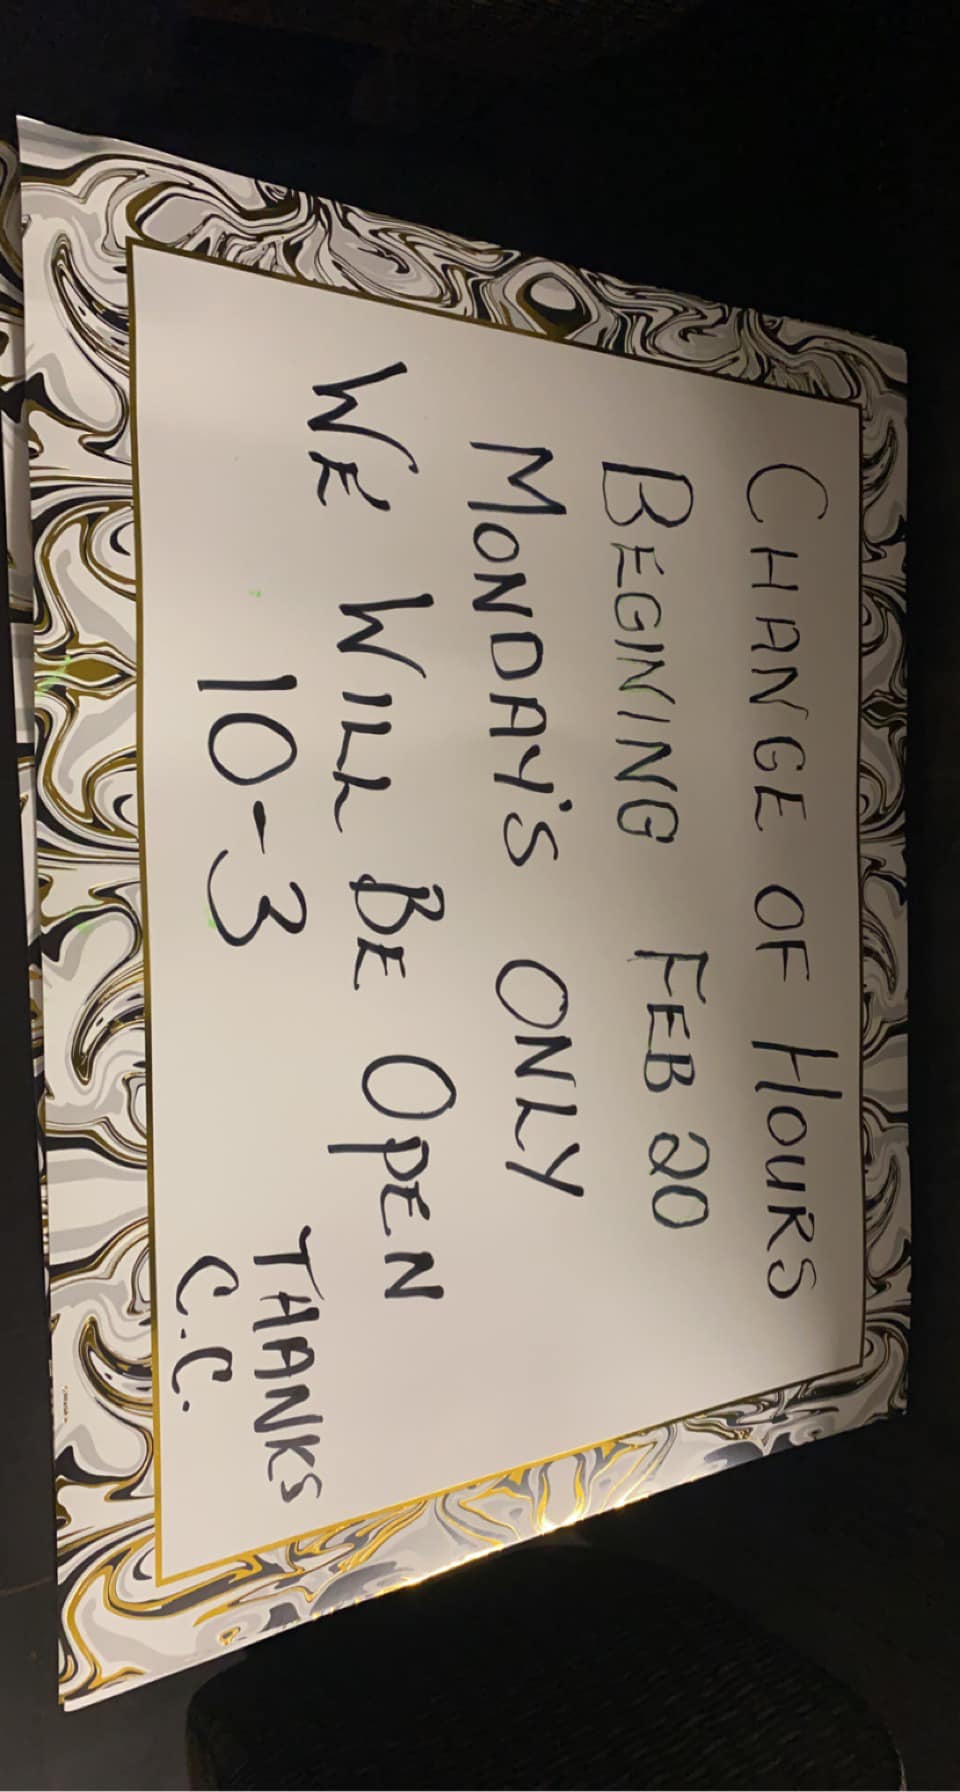 CHANGE OF HOURS
BEGINING FEB 20
MONDAY'S ONLY
WE WILL BE OPEN
10-3
THANKS
C.C.